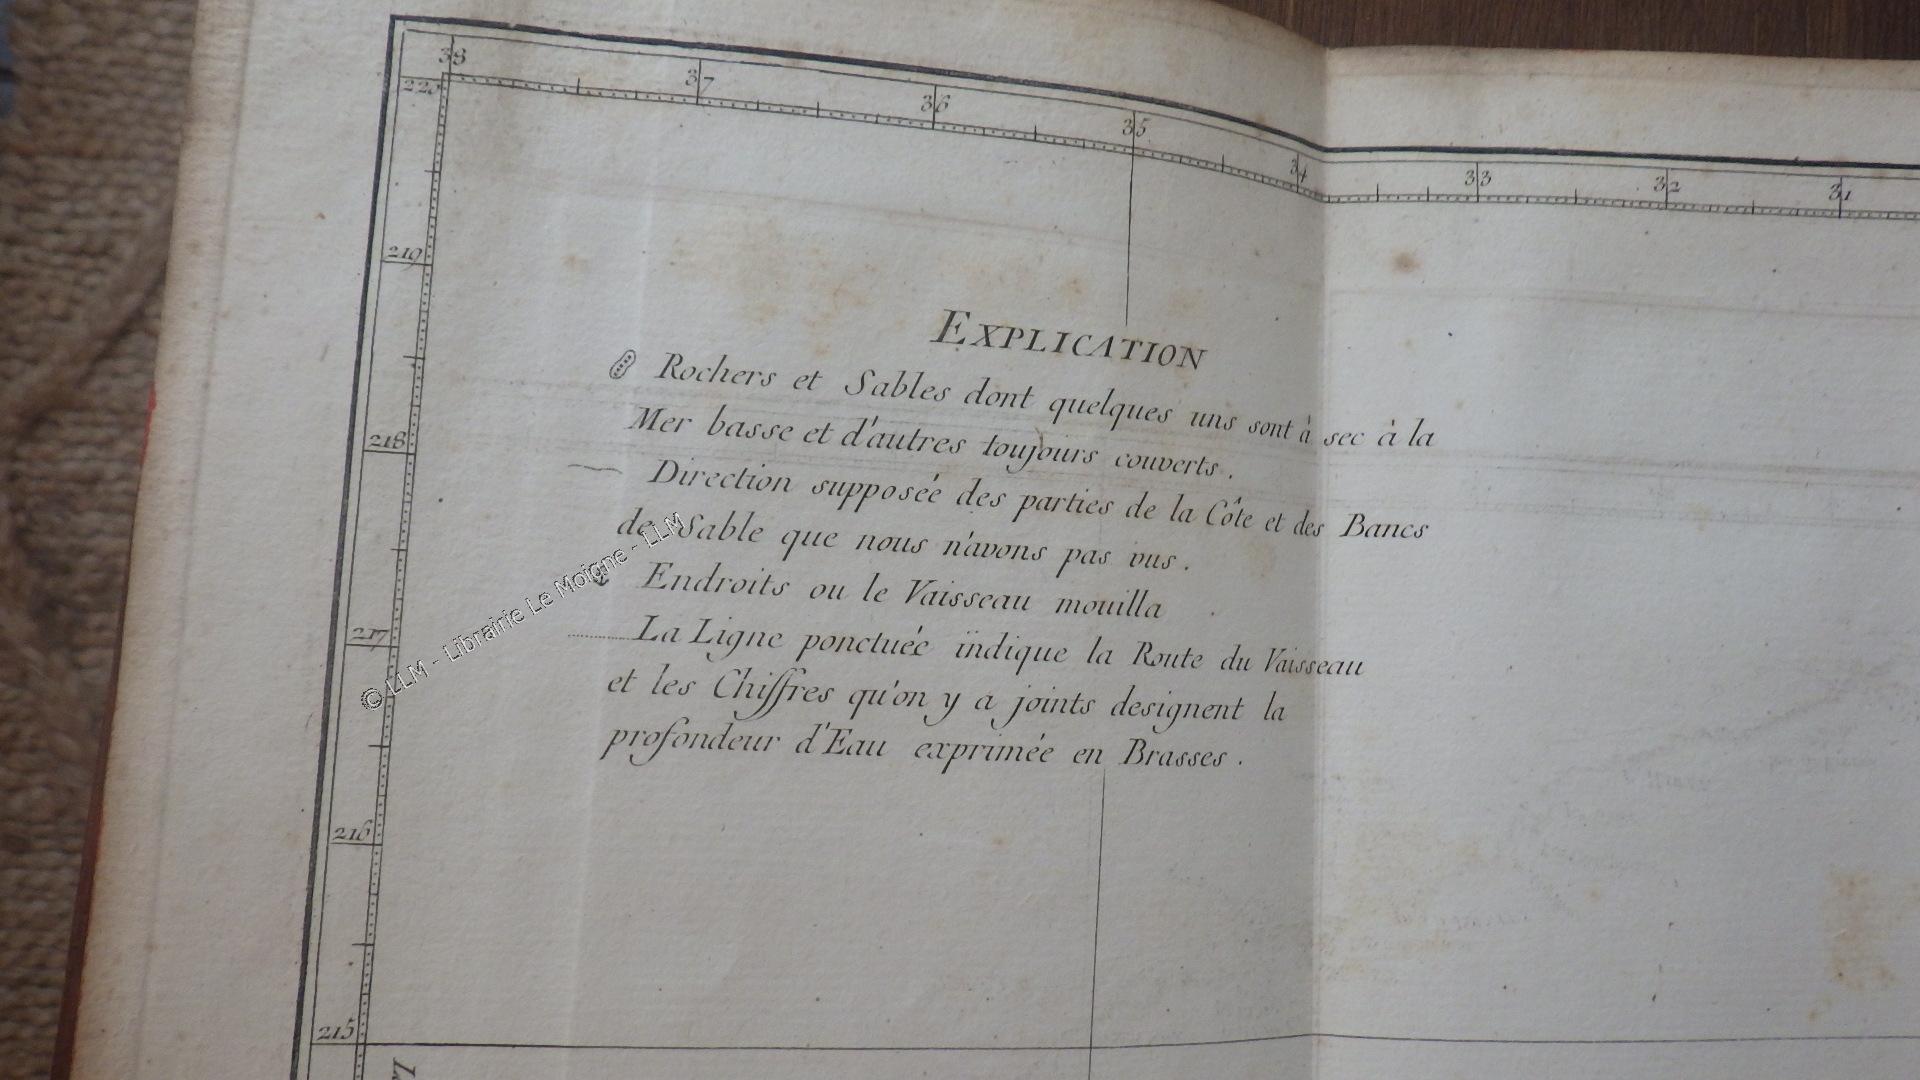 38 37 36 35 34 33 32 31
220
219
218
217
216
215
EXPLICATION
Rochers et Sables dont quelques uns sont à sec à la
Mer basse et d'autres toujours couverts.
Direction supposée des parties de la Côte et des Bancs
de Sable que nous n'avons pas vus.
Endroits ou le Vaisseau mouilla
La Ligne ponctuée indique la Route du Vaisseau
et les Chiffres qu'on y a joints designent la
profondeur d'Eau exprimée en Brasses.
© LLM - Librairie Le Moigne - LLM